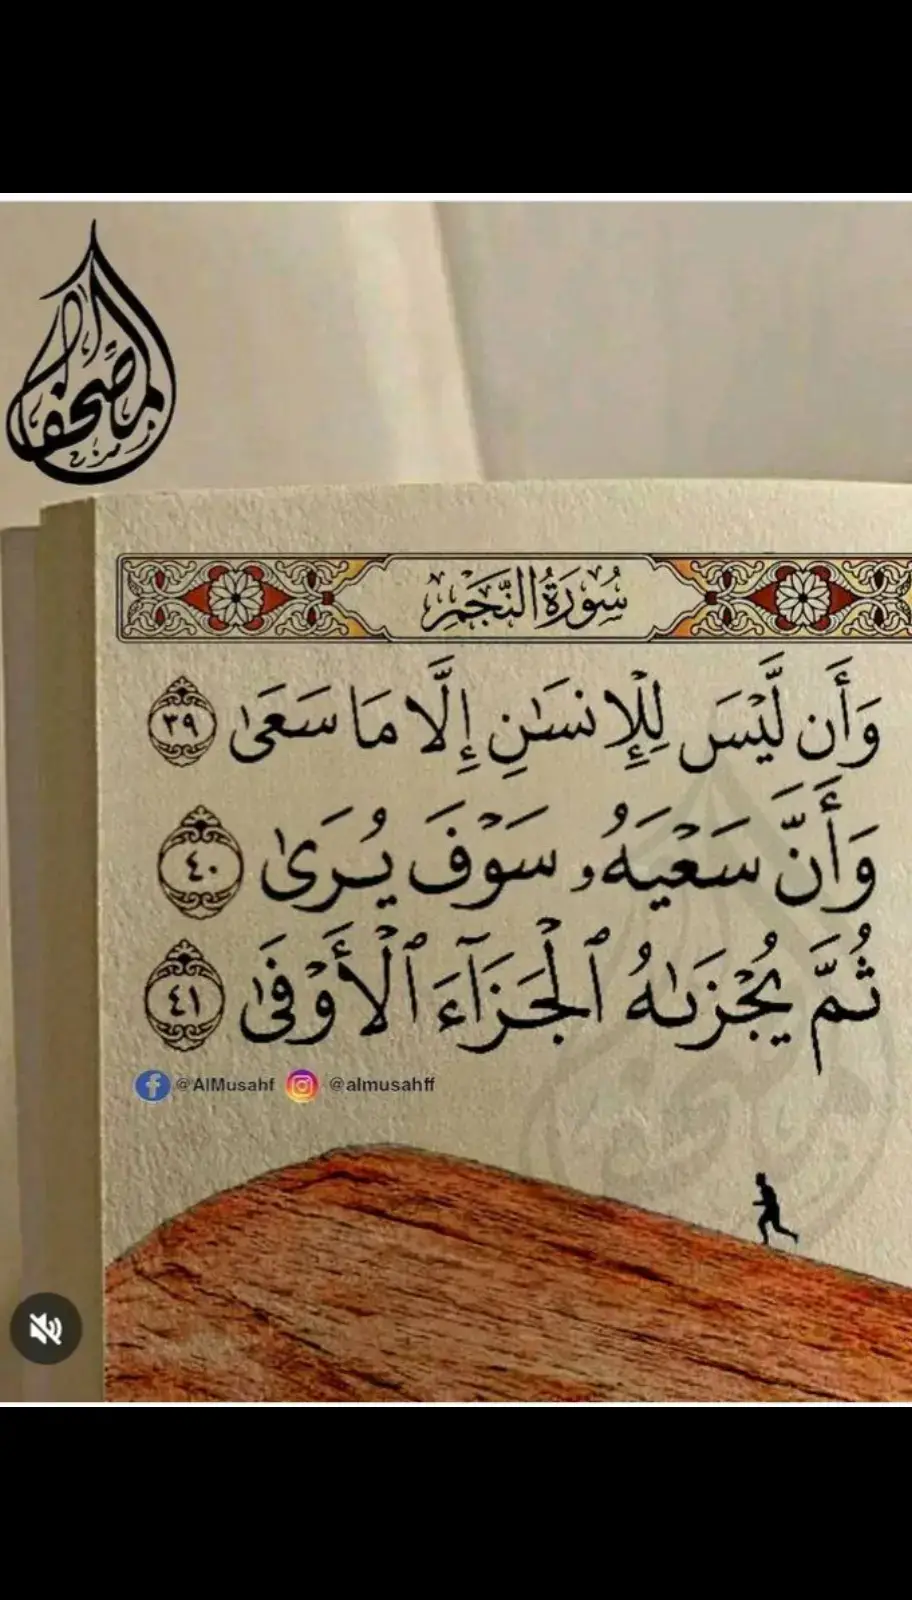 المصحف
سُورَةُ النَّجْمِ
وَأَن لَّيْسَ لِلْإِنسَٰنِ إِلَّا مَا سَعَىٰ ٣٩
وَأَنَّ سَعْيَهُۥ سَوْفَ يُرَىٰ ٤٠
ثُمَّ يُجْزَىٰهُ ٱلْجَزَآءَ ٱلْأَوْفَىٰ ٤١
@AlMusahf @almusahff